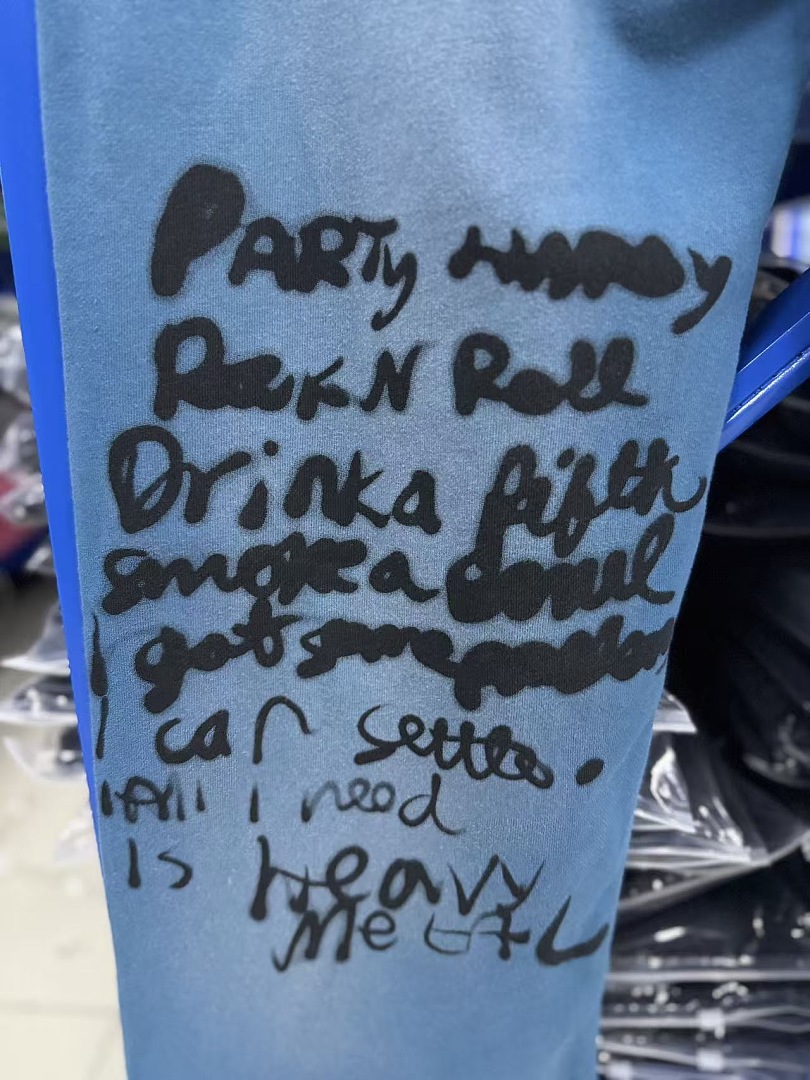 PARTy HARDy
RockN Roll
Drinka fifth
smoke a bowl
I got some problems
I can settle.
All I need
Is Heavy
MetAL